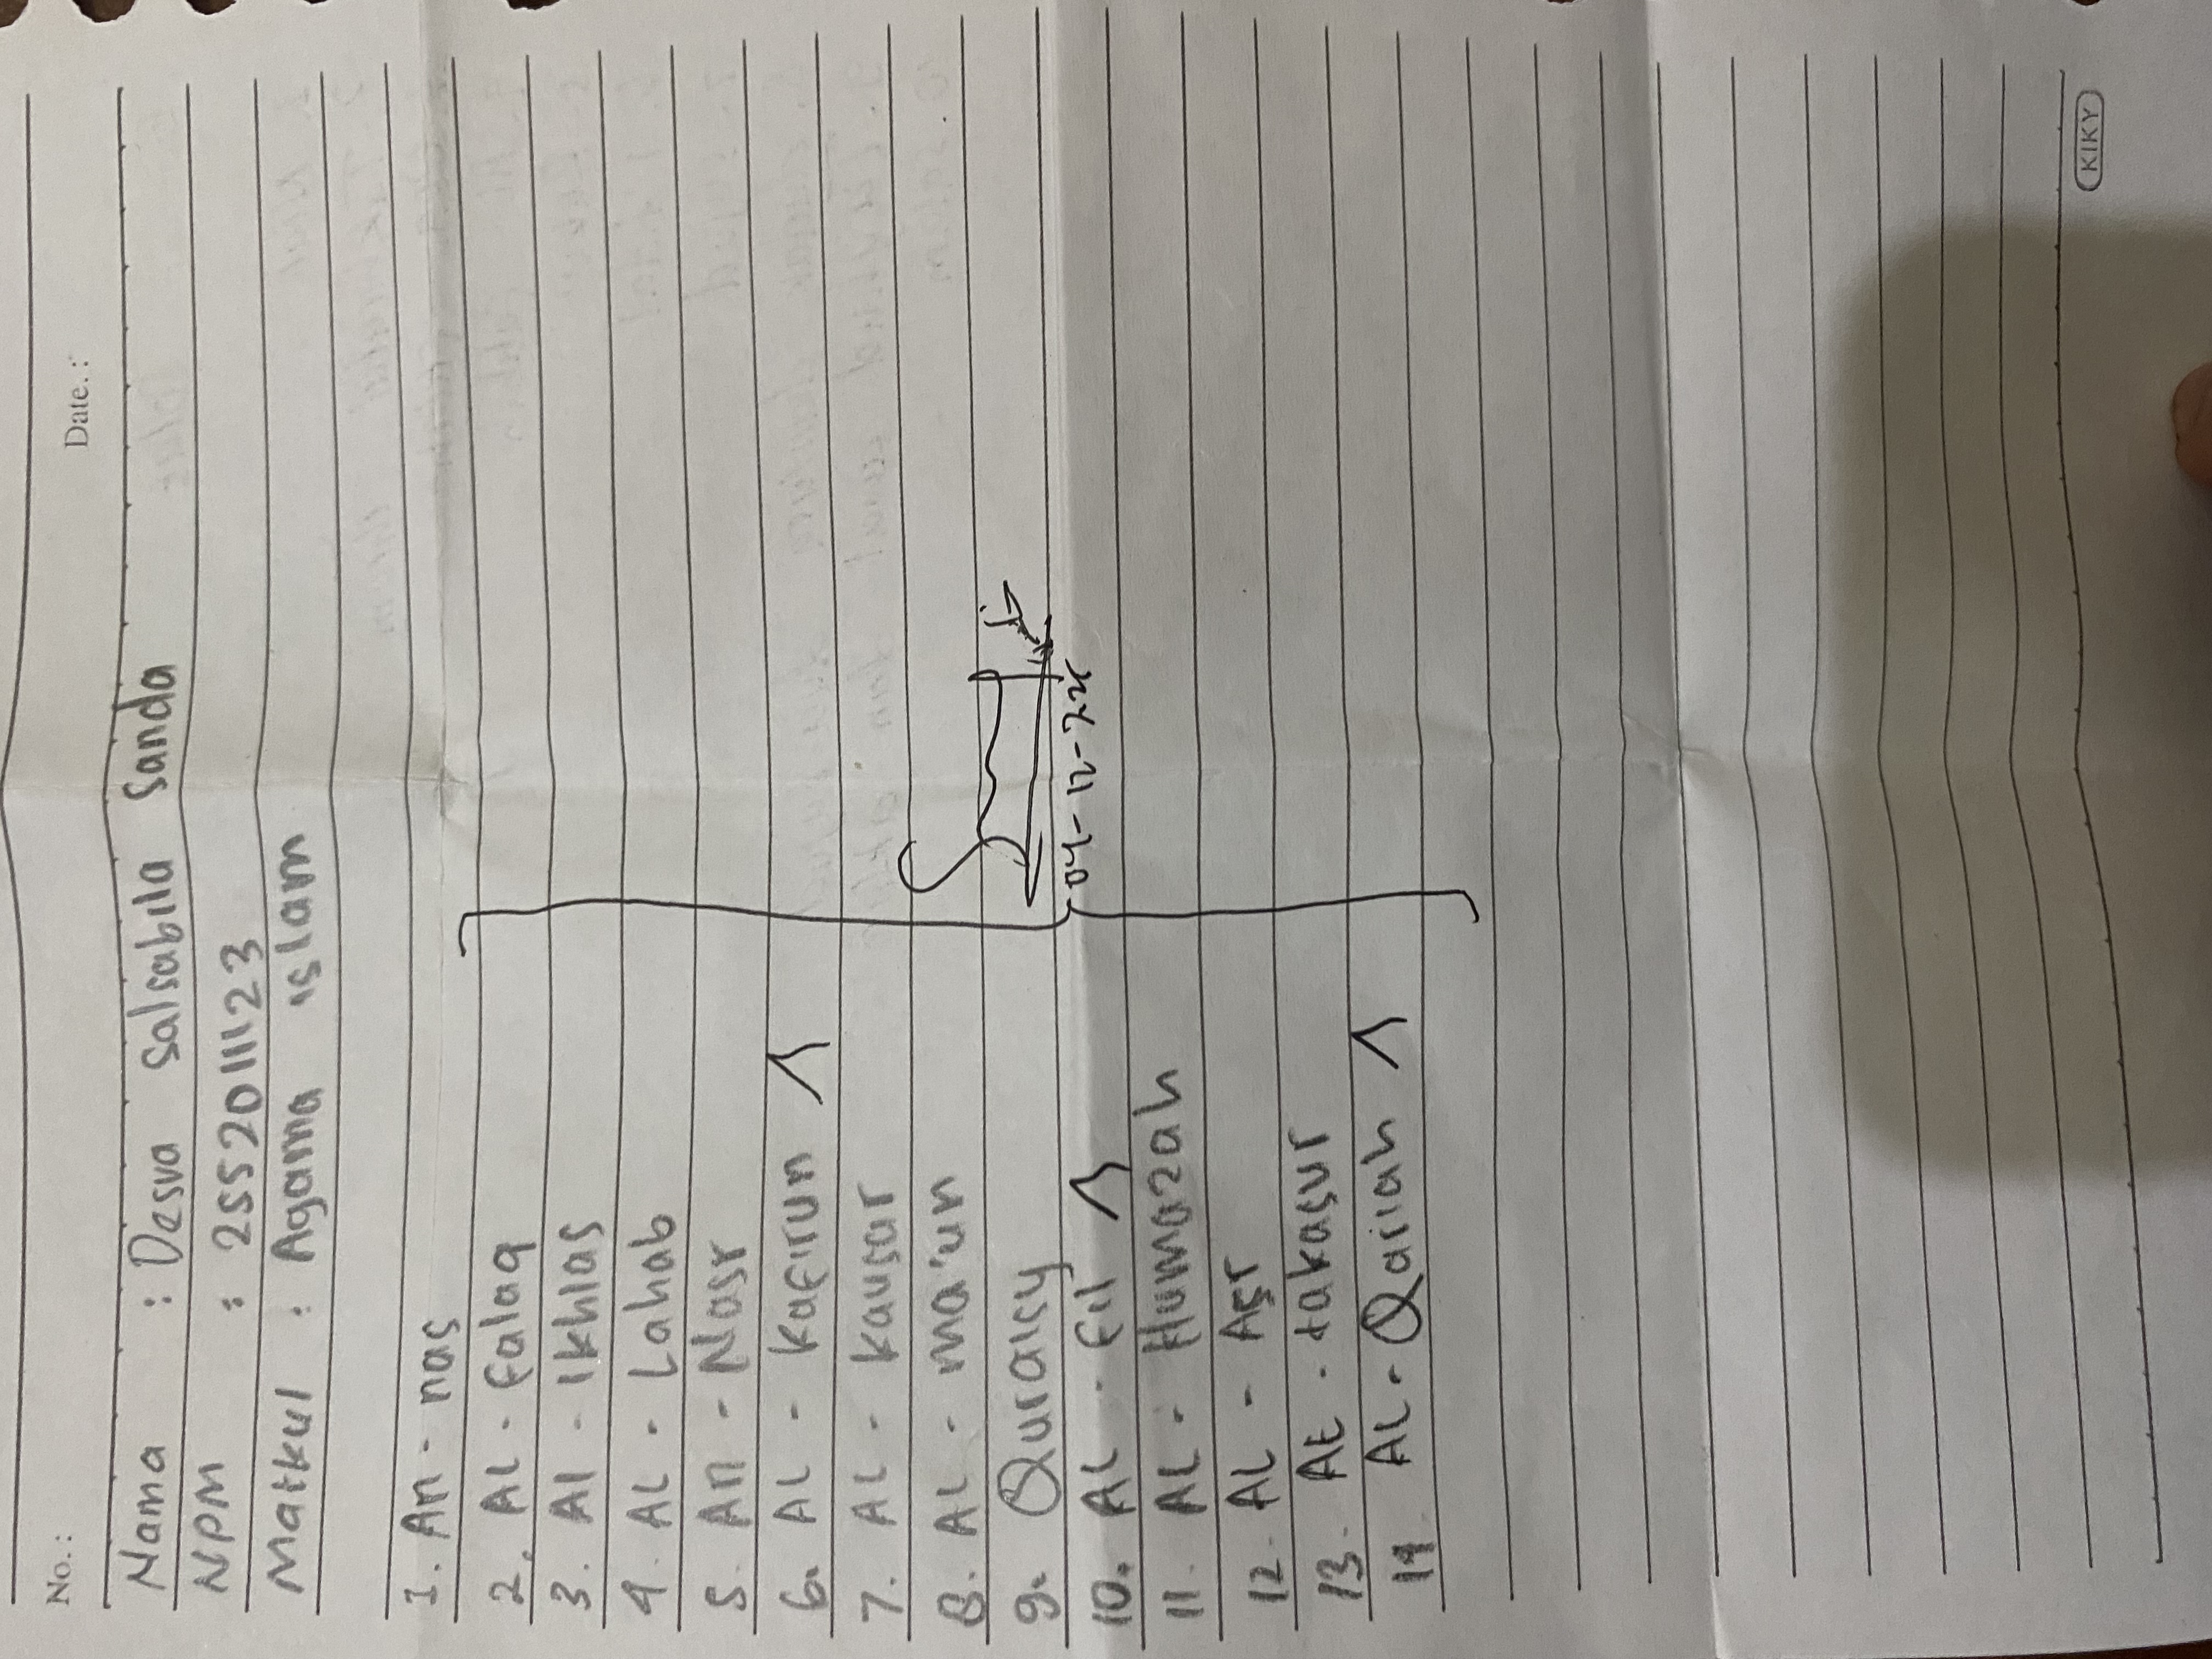 No.:
Date.:
Nama : Desva Salsabila Sanda
NPM : 2552011123
Matkul : Agama islam
1. An - nas
2. AL - Falaq
3. Al - Ikhlas
4. AL - Lahab
5. An - Nasr
6. AL - Kafirun
7. AL - kausar
8. AL - ma'un
9. Quraisy
10. AL - Fil
11. AL - Humazah
12. AL - Asr
13. At - takasur
14. AL - Qariah
04-12-
KIKY